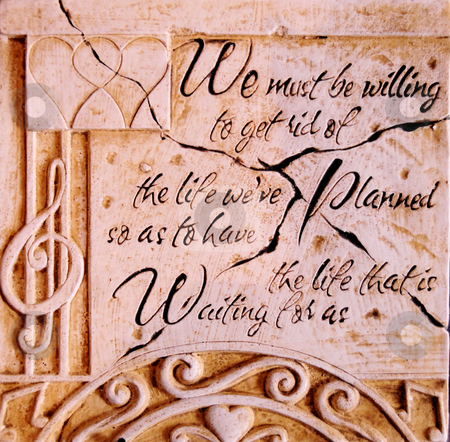 We must be willing
to get rid of
the life we've Planned
so as to have
the life that is
Waiting for as